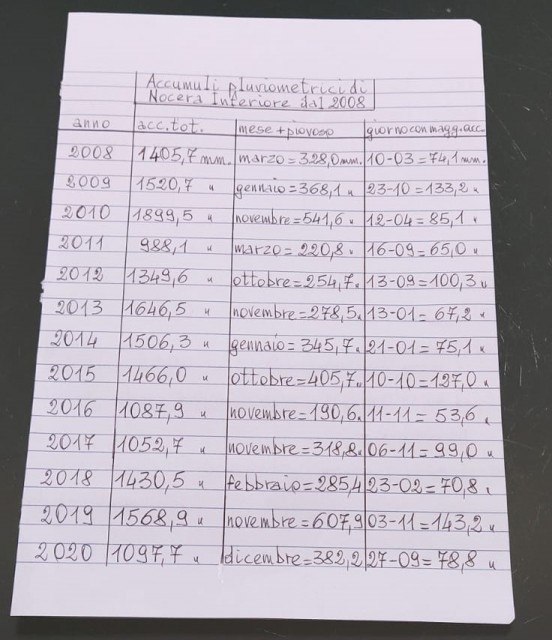 Accumuli pluviometrici di
Nocera Inferiore dal 2008
anno acc.tot. mese+piovoso giorno con magg.acc.
2008 1405,7mm. marzo=328,0mm. 10-03=74,1mm.
2009 1520,7 " gennaio=368,1 " 23-10=133,2 "
2010 1899,5 " novembre=541,6 " 12-04=85,1 "
2011 988,1 " marzo=220,8 " 16-09=65,0 "
2012 1349,6 " ottobre=254,7 " 13-09=100,3 "
2013 1646,5 " novembre=278,5 " 13-01=67,2 "
2014 1506,3 " gennaio=345,7 " 21-01=75,1 "
2015 1466,0 " ottobre=405,7 " 10-10=127,0 "
2016 1087,9 " novembre=190,6 " 11-11=53,6 "
2017 1052,7 " novembre=318,8 " 06-11=99,0 "
2018 1430,5 " febbraio=285,4 23-02=70,8 "
2019 1568,9 " novembre=607,9 03-11=143,2 "
2020 1097,7 " dicembre=382,2 27-09=78,8 "